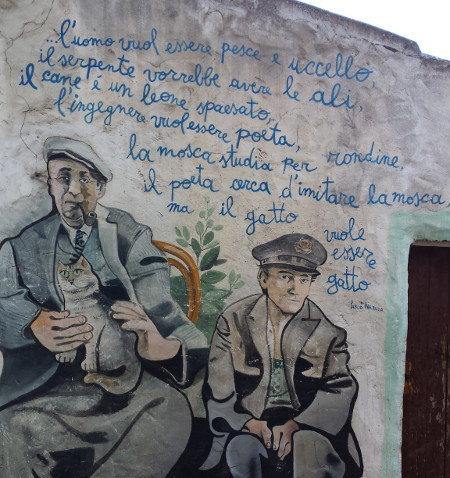 ...l'uomo vuol essere pesce e uccello,
il serpente vorrebbe avere le ali,
il cane é un leone spaesato,
l'ingegnere vuol essere poeta,
la mosca studia per rondine,
il poeta cerca d'imitare la mosca,
ma il gatto
vuole
essere
gatto